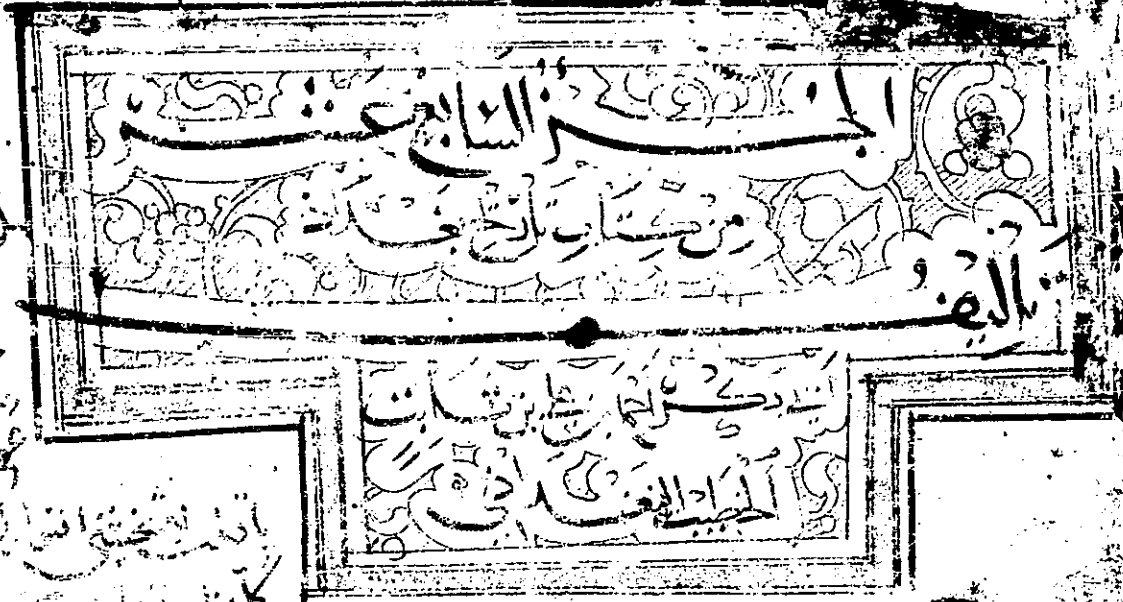 الجزء السابع عشر
من كتاب تاريخ بغداد
تأليف
أبي بكر أحمد بن علي بن ثابت
الخطيب البغدادي